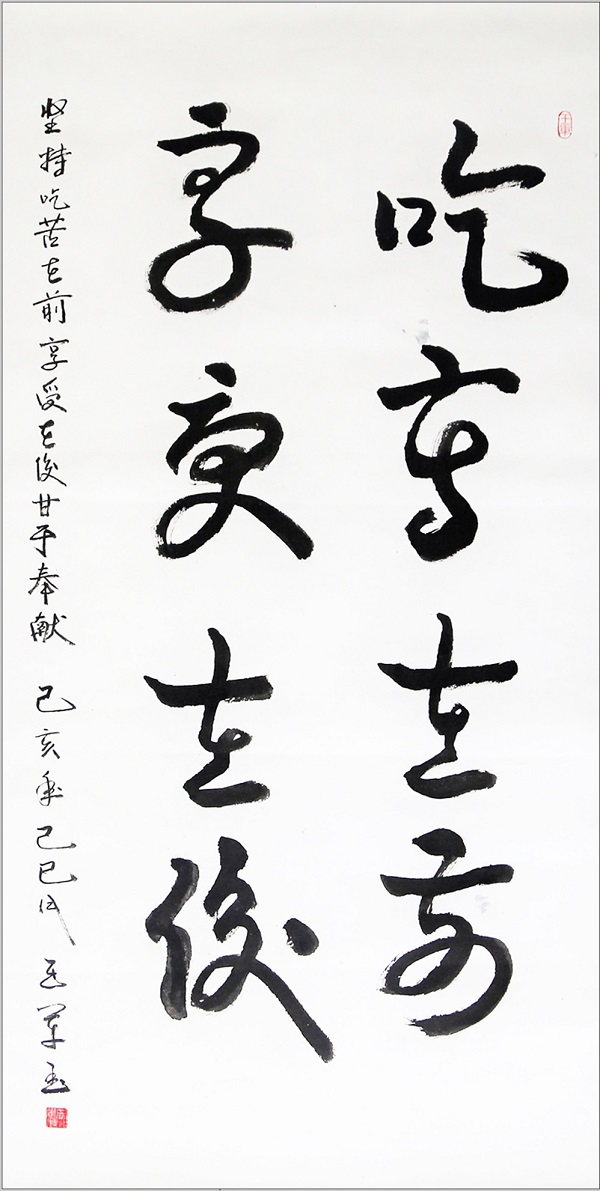 吃苦在前
享受在後
坚持吃苦在前享受在後甘于奉献 己亥年己巳月